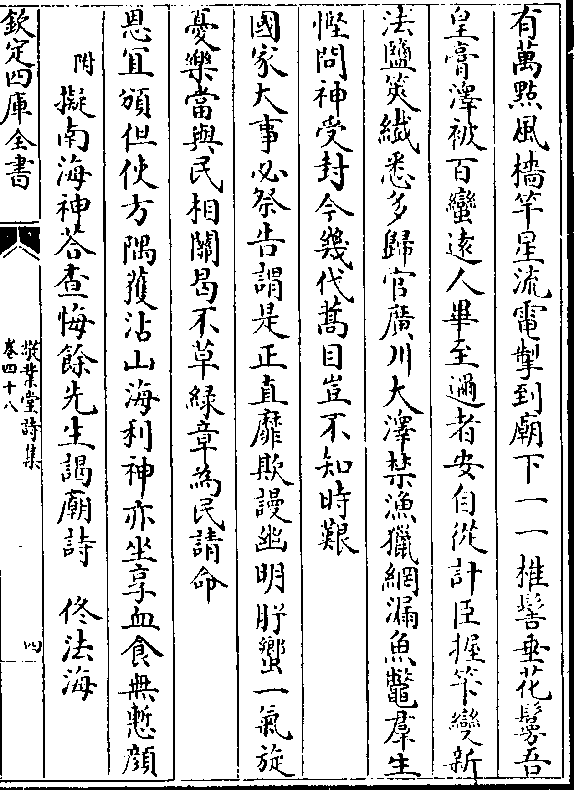 有萬㸃風檣竿星流電掣到廟下一一椎髻垂花鬘吾
皇膏澤被百蠻逺人畢至邇者安自從計臣握筭變新
法鹽筴纎悉多歸官廣川大澤禁漁獵網漏魚鼈羣生
慳問神受封今幾代蒿目豈不知時艱
國家大事必祭告謂是正直靡欺謾幽明肸蠁一氣旋
憂樂當與民相關曷不草綠章為民請命
恩宜頒但使方隅獲沾山海利神亦坐享血食無慙顔
附擬南海神荅查悔餘先生謁廟詩　佟法海
欽定四庫全書
敬業堂詩集
卷四十八
四